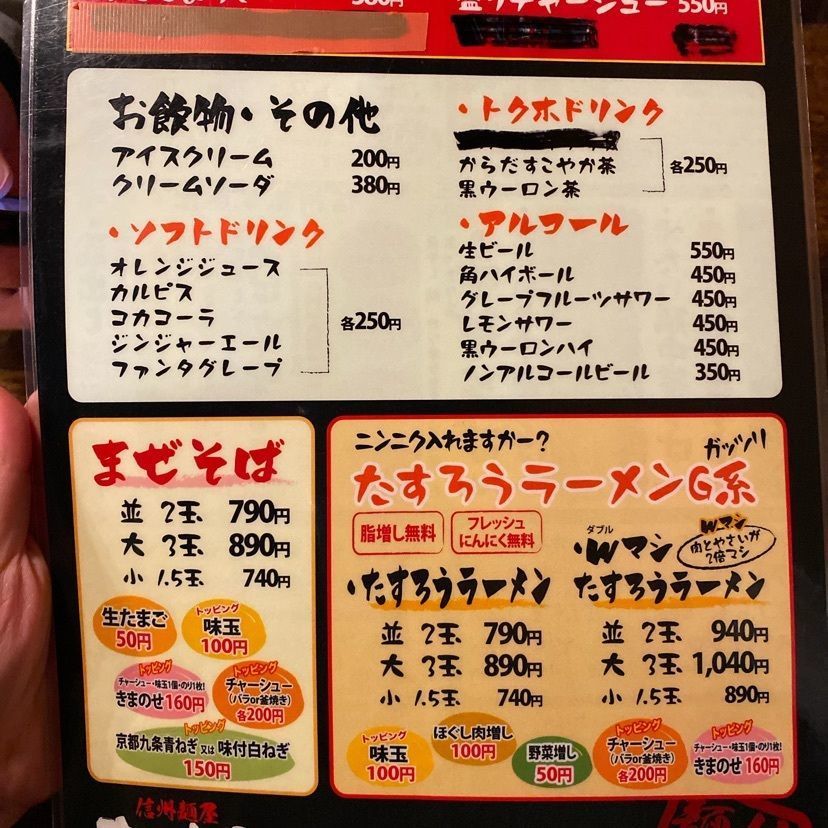 580円
盛りチャーシュー 550円
お飲物・その他
アイスクリーム 200円
クリームソーダ 380円
・ソフトドリンク
オレンジジュース
カルピス
コカコーラ
ジンジャーエール
ファンタグレープ
各250円
・トクホドリンク
からだすこやか茶
黒ウーロン茶
各250円
・アルコール
生ビール 550円
角ハイボール 450円
グレープフルーツサワー 450円
レモンサワー 450円
黒ウーロンハイ 450円
ノンアルコールビール 350円
まぜそば
並 2玉 790円
大 3玉 890円
小 1.5玉 740円
生たまご
50円
トッピング
味玉
100円
トッピング
チャーシュー・味玉1個・のり1枚!
きまのせ 160円
トッピング
チャーシュー
(バラor釜焼き)
各200円
トッピング
京都九条青ねぎ 又は 味付白ねぎ
150円
ニンニク入れますかー?
ガッツリ
たすろうラーメンG系
脂増し無料
フレッシュ
にんにく無料
・たすろうラーメン
並 2玉 790円
大 3玉 890円
小 1.5玉 740円
ダブル
・Wマシ
Wマシ
肉とやさいが
2倍マシ
たすろうラーメン
並 2玉 940円
大 3玉 1,040円
小 1.5玉 890円
トッピング
味玉
100円
ほぐし肉増し
100円
野菜増し
50円
トッピング
チャーシュー
(バラor釜焼き)
各200円
トッピング
チャーシュー・味玉1個・のり1枚!
きまのせ 160円
信州麺屋